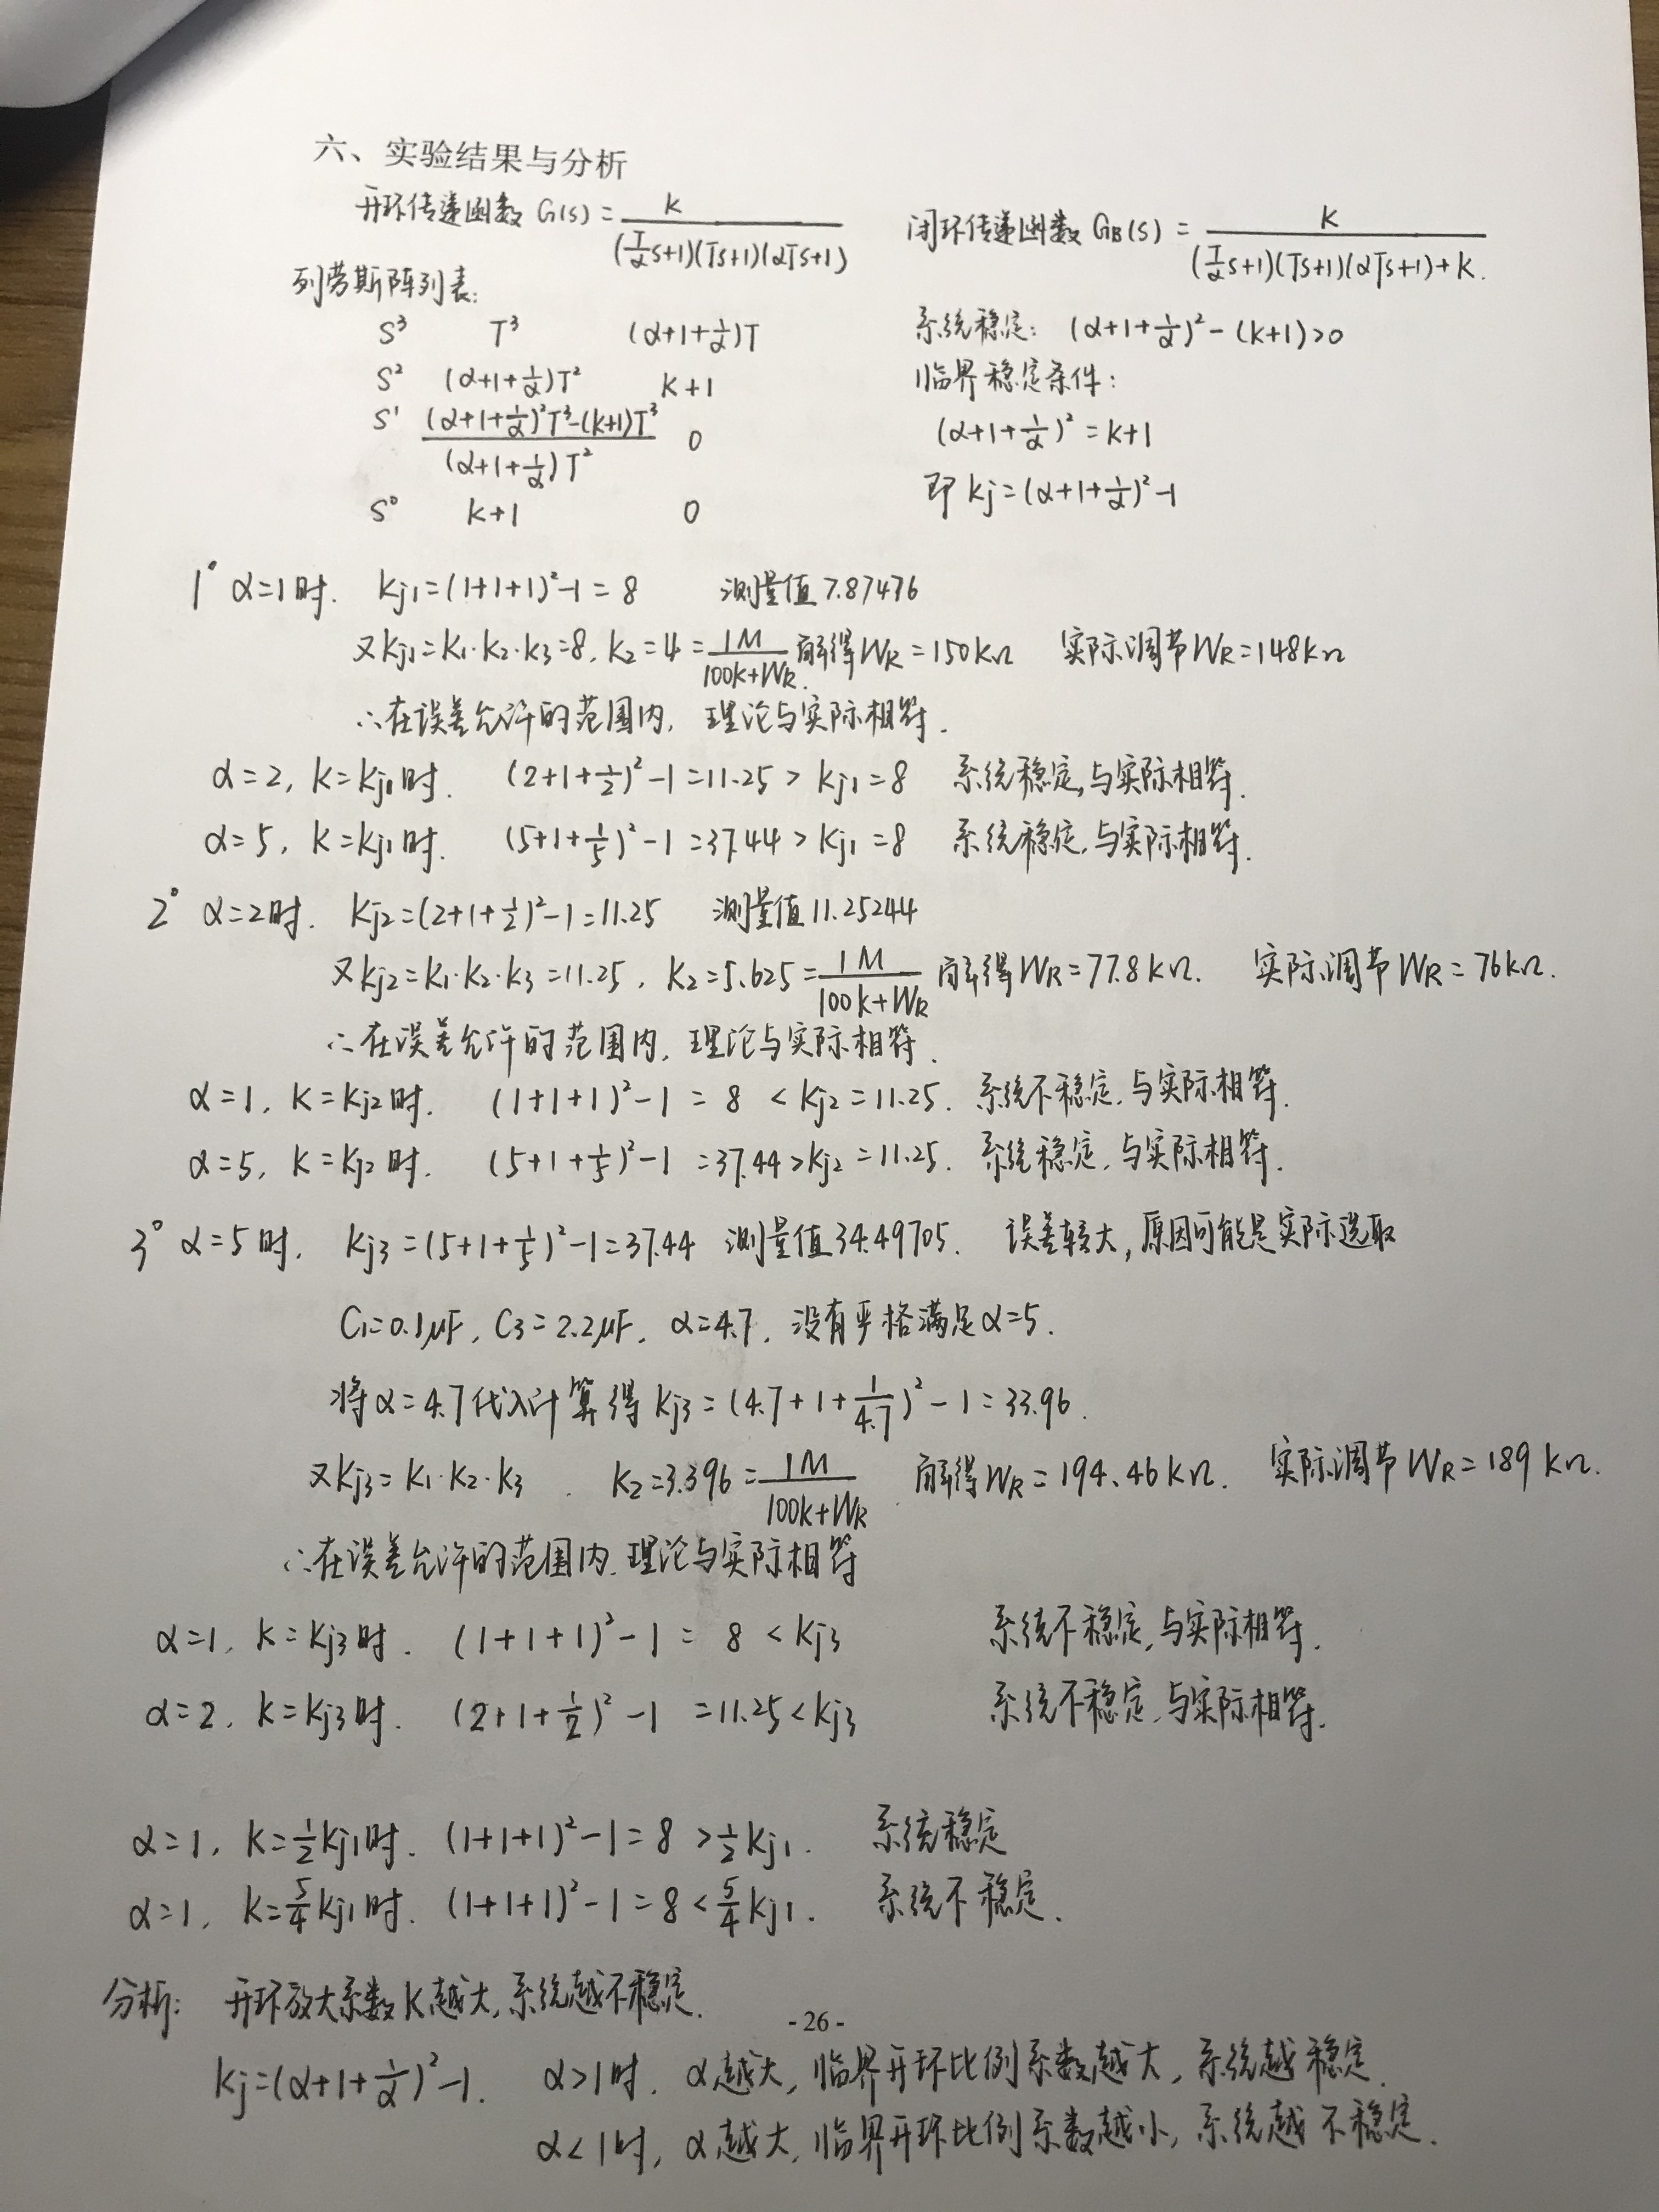 六、实验结果与分析
开环传递函数 G(s) = K / ((T/α)s+1)(Ts+1)(αTs+1)
闭环传递函数 GB(s) = K / ((T/α)s+1)(Ts+1)(αTs+1)+K.
列劳斯阵列表:
S³ T³ (α+1+1/α)T
S² (α+1+1/α)T² K+1
S¹ ((α+1+1/α)²T³-(K+1)T³) / ((α+1+1/α)T²) 0
S⁰ K+1 0
系统稳定: (α+1+1/α)²-(K+1)>0
临界稳定条件:
(α+1+1/α)² = K+1
即 Kj=(α+1+1/α)²-1
1° α=1时. Kj1=(1+1+1)²-1=8 测量值7.87476
又Kj1=K1·K2·K3=8, K2=4=1M/(100K+WR). 解得WR=150KΩ 实际调节WR=148KΩ
∴在误差允许的范围内, 理论与实际相符.
α=2, K=Kj1时. (2+1+1/2)²-1=11.25 > Kj1=8 系统稳定,与实际相符.
α=5, K=Kj1时. (5+1+1/5)²-1=37.44 > Kj1=8 系统稳定,与实际相符.
2° α=2时. Kj2=(2+1+1/2)²-1=11.25 测量值11.25244
又Kj2=K1·K2·K3=11.25, K2=5.625=1M/(100K+WR) 解得WR=77.8KΩ. 实际调节WR=76KΩ.
∴在误差允许的范围内, 理论与实际相符.
α=1, K=Kj2时. (1+1+1)²-1 = 8 < Kj2=11.25. 系统不稳定,与实际相符.
α=5, K=Kj2时. (5+1+1/5)²-1 =37.44>Kj2=11.25. 系统稳定,与实际相符.
3° α=5时. Kj3=(5+1+1/5)²-1=37.44 测量值34.49705. 误差较大,原因可能是实际选取
C1=0.1μF, C3=2.2μF, α=4.7, 没有严格满足α=5.
将α=4.7代入计算得Kj3=(4.7+1+1/4.7)²-1=33.96.
又Kj3=K1·K2·K3. K2=3.396=1M/(100K+WR). 解得WR=194.46KΩ. 实际调节WR=189KΩ.
∴在误差允许的范围内,理论与实际相符
α=1, K=Kj3时. (1+1+1)²-1 = 8 < Kj3 系统不稳定,与实际相符.
α=2, K=Kj3时. (2+1+1/2)²-1 =11.25<Kj3 系统不稳定,与实际相符.
α=1, K=1/2Kj1时. (1+1+1)²-1=8 >1/2Kj1. 系统稳定
α=1, K=5/4Kj1时. (1+1+1)²-1=8<5/4Kj1. 系统不稳定.
分析: 开环放大系数K越大,系统越不稳定.
-26-
Kj=(α+1+1/α)²-1. α>1时, α越大, 临界开环比例系数越大, 系统越稳定.
α<1时, α越大, 临界开环比例系数越小, 系统越不稳定.